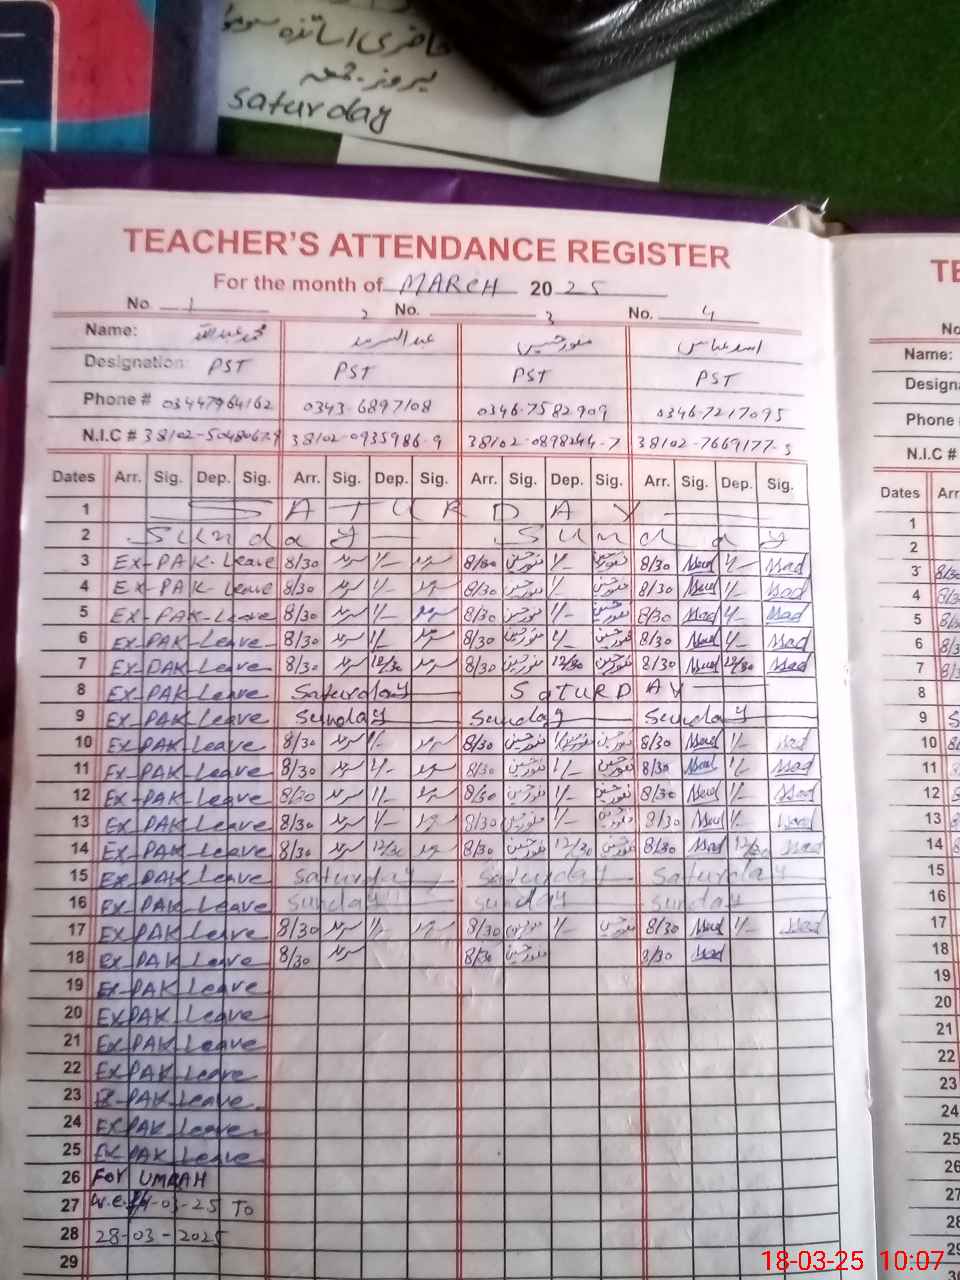 حاضری اساتذہ
بروز جمعہ
saturday
TEACHER'S ATTENDANCE REGISTER
For the month of MARCH 2025
No. 1 2 No. 3 No. 4
Name: محمد عبداللہ عبدالسرمد منور حسین اسد عباس
Designation: PST PST PST PST
Phone # 03447964162 0343-6897108 0346-7582909 0346-7217095
N.I.C # 38102-0935986-9 38102-0898244-7 38102-7669177-3
Dates Arr. Sig. Dep. Sig. Arr. Sig. Dep. Sig. Arr. Sig. Dep. Sig. Arr. Sig. Dep. Sig.
1 SATURDAY
2 Sunday Sunday
3 EX-PAK-Leave 8/30 سرمد 1/- سرمد 8/30 منور حسین 1/- منور حسین 8/30 Asad 1/- Asad
4 EX-PAK Leave 8/30 سرمد 1/- سرمد 8/30 منور حسین 1/- منور حسین 8/30 Asad 1/- Asad
5 EX-PAK-Leave 8/30 سرمد 1/- سرمد 8/30 منور حسین 1/- منور حسین 8/30 Asad 1/- Asad
6 EX-PAK-Leave 8/30 سرمد 1/- سرمد 8/30 منور حسین 1/- منور حسین 8/30 Asad 1/- Asad
7 EX-PAK-Leave 8/30 سرمد 12/30 سرمد 8/30 منور حسین 12/30 منور حسین 8/30 Asad 12/30 Asad
8 EX-PAK-Leave Saturday SATURDAY
9 EX-PAK-Leave Sunday Sunday Sunday
10 EX-PAK-Leave 8/30 سرمد 1/- سرمد 8/30 منور حسین 1/- منور حسین 8/30 Asad 1/- Asad
11 EX-PAK-Leave 8/30 سرمد 1/- سرمد 8/30 منور حسین 1/- منور حسین 8/30 Asad 1/- Asad
12 EX-PAK-Leave 8/30 سرمد 1/- سرمد 8/30 منور حسین 1/- منور حسین 8/30 Asad 1/- Asad
13 EX-PAK-Leave 8/30 سرمد 1/- سرمد 8/30 منور حسین 1/- منور حسین 8/30 Asad 1/- Asad
14 EX-PAK-Leave 8/30 سرمد 12/30 سرمد 8/30 منور حسین 12/30 منور حسین 8/30 Asad 12/30 Asad
15 EX-PAK-Leave Saturday Saturday Saturday
16 EX-PAK-Leave Sunday Sunday Sunday
17 EX-PAK Leave 8/30 سرمد 1/- سرمد 8/30 منور حسین 1/- منور حسین 8/30 Asad 1/- Asad
18 EX-PAK Leave 8/30 سرمد 8/30 منور حسین 8/30 Asad
19 EX-PAK Leave
20 EXPAK Leave
21 EXPAK Leave
22 EXPAK Leave
23 EX-PAK-Leave
24 EXPAK Leave
25 EXPAK Leave
26 For UMRAH
27 w.e.f 4-03-25 To
28 28-03-2025
29
Name:
Phone
N.I.C #
Dates Arr
1
2
3
4
5
6
7
8
9
10
11
12
13
14
15
16
17
18
19
20
21
22
23
24
25
26
27
28
29
18-03-25 10:07